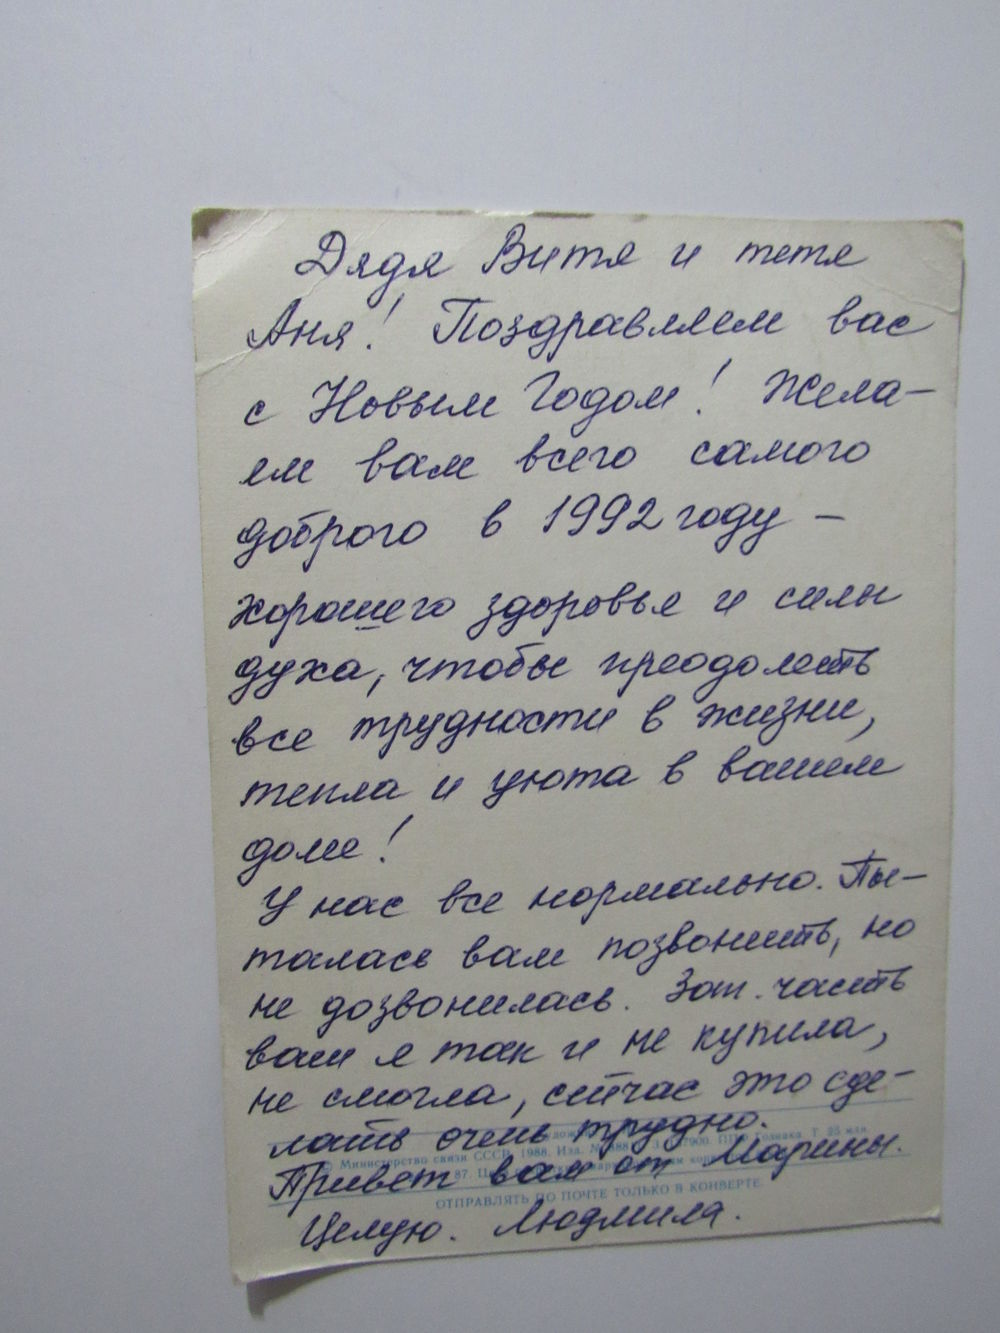 Дядя Витя и тетя
Аня! Поздравляем вас
с Новым Годом! Жела-
ем вам всего самого
доброго в 1992 году -
хорошего здоровья и силы
духа, чтобы преодолеть
все трудности в жизни,
тепла и уюта в вашем
доме!
У нас все нормально. Пы-
талась вам позвонить, но
не дозвонилась. Зап. часть
вам я так и не купила,
не смогла, сейчас это сде-
лать очень трудно.
© Министерство связи СССР, 1988. Изд.
Привет вам от Марины.
ОТПРАВЛЯТЬ ПО ПОЧТЕ ТОЛЬКО В КОНВЕРТЕ
Целую. Людмила.